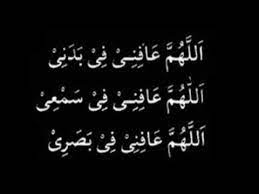 اَللَّهُمَّ عَافِنِىْ فِىْ بَدَنِىْ
اَللَّهُمَّ عَافِنِىْ فِىْ سَمْعِىْ
اَللَّهُمَّ عَافِنِىْ فِىْ بَصَرِىْ